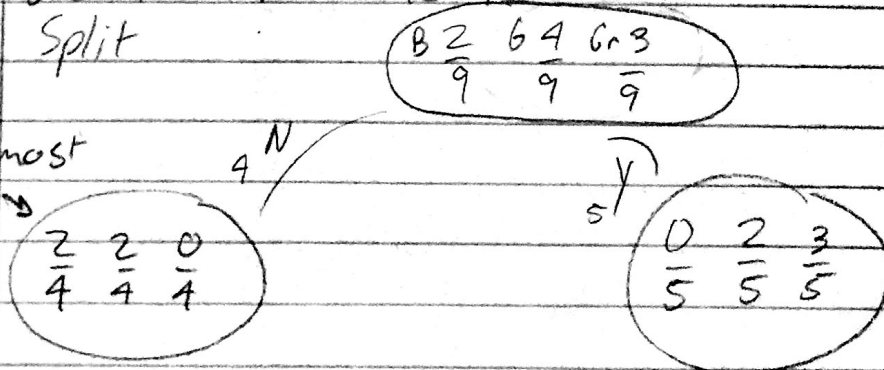 Split B 2/9 G 4/9 Gr 3/9
most 4 N 5 Y
2/4 2/4 0/4 0/5 2/5 3/5